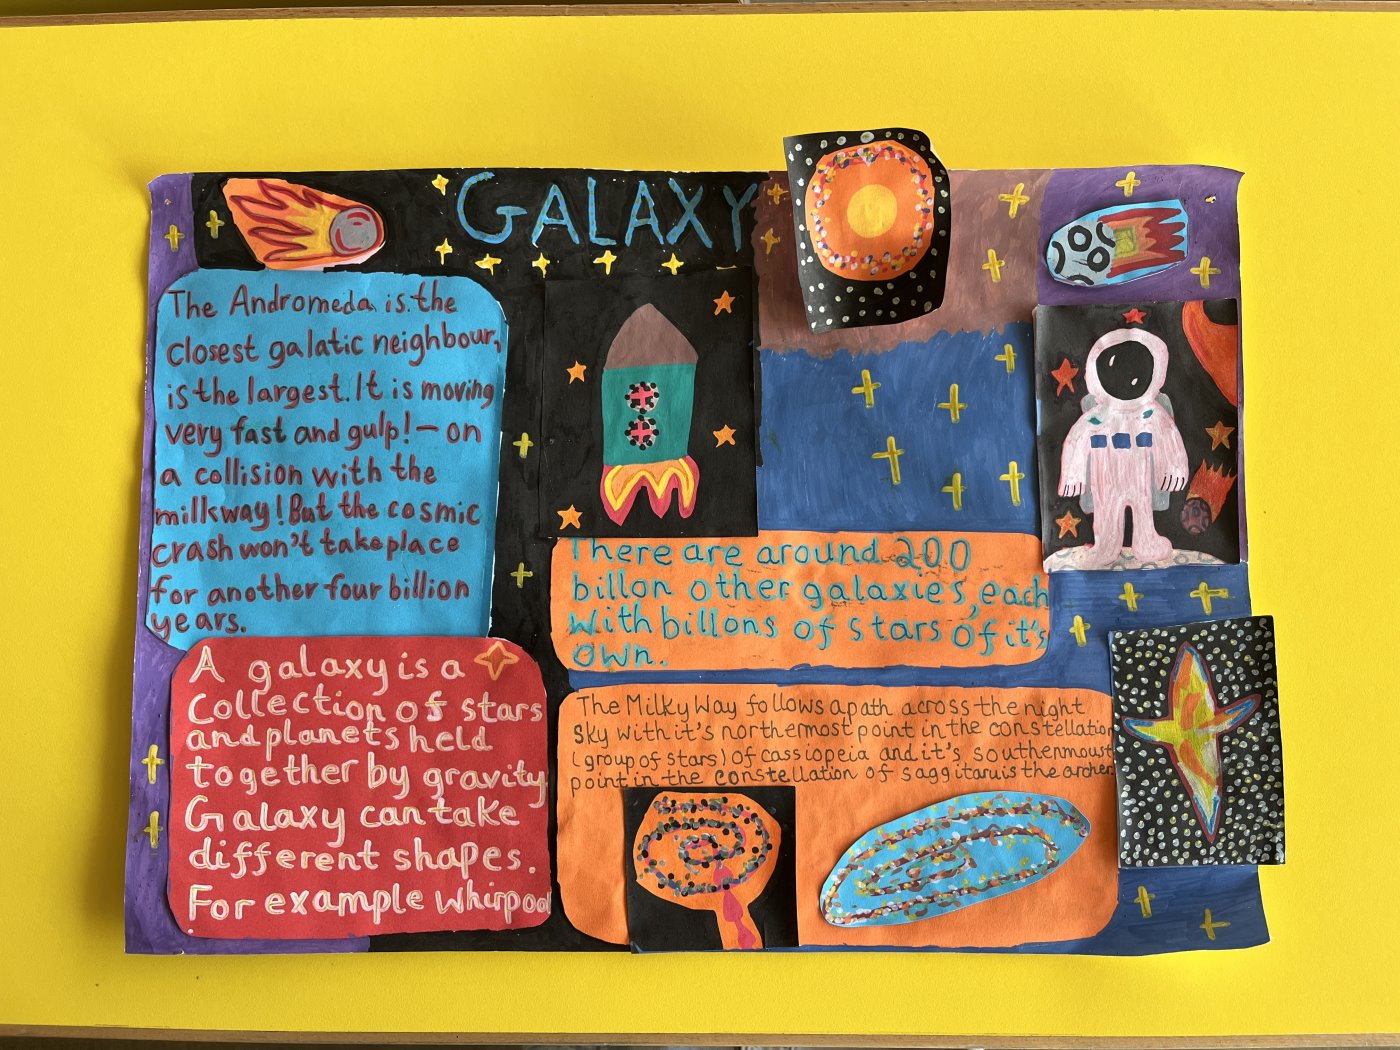 GALAXY
The Andromeda is the
closest galatic neighbour,
is the largest. It is moving
very fast and gulp! – on
a collision with the
milkway! But the cosmic
crash won't take place
for another four billion
years.
A galaxy is a
Collection of stars
and planets held
together by gravity
Galaxy can take
different shapes.
For example whirpool
.
There are around 200
billon other galaxies, each
with billons of stars of it's
own.
The Milky Way follows a path across the night
sky with it's northermost point in the constellation
(group of stars) of cassiopeia and it's, southenmoust
point in the constellation of saggitaruis the archer.